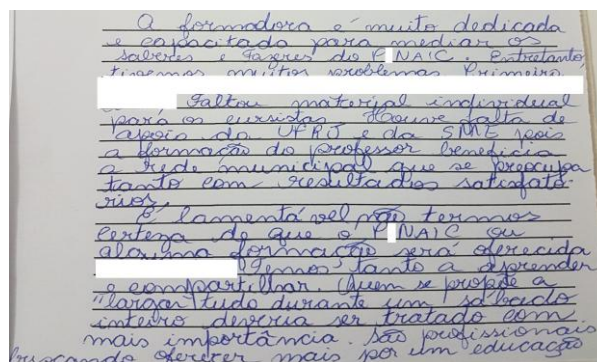 A formadora é muito dedicada
e capacitada para mediar os
saberes e fazeres do P NAIC. Entretanto
tivemos muitos problemas. Primeiro
Faltou material individual
para os cursistas. Houve falta de
apoio da UFRJ e da SME pois
a formação do professor beneficia
a rede municipal que se preocupa
tanto com resultados satisfató-
rios.
É lamentável não termos
certeza de que o P NAIC ou
alguma formação será oferecida
Temos tanto a aprender
e compartilhar. Quem se propõe a
"largar" tudo durante um sábado
inteiro deveria ser tratado com
mais importância. São profissionais
buscando oferecer mais por um educação